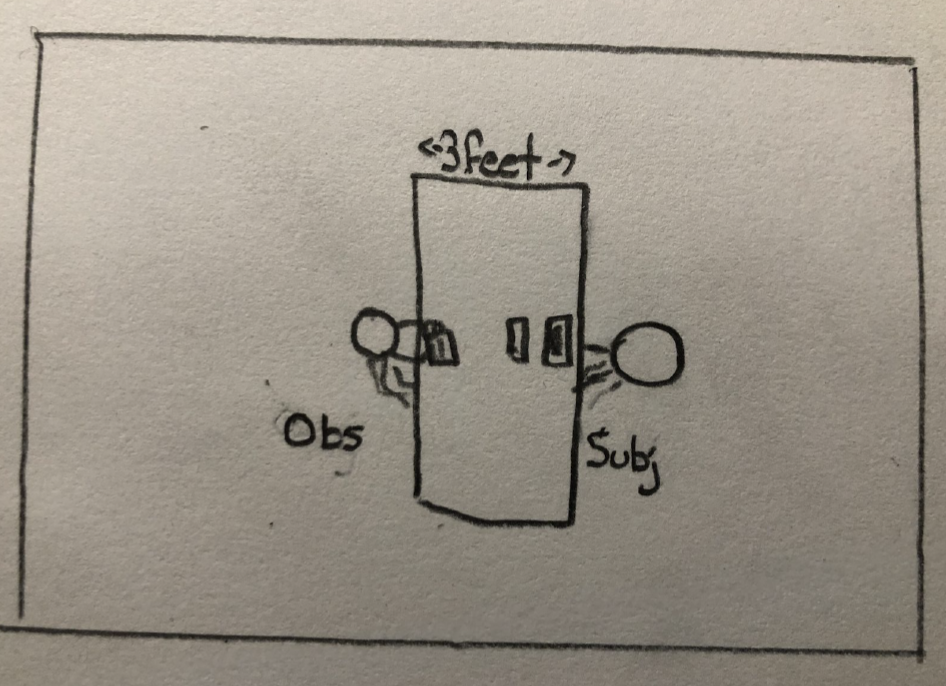 <-3feet->
Obs
Subj